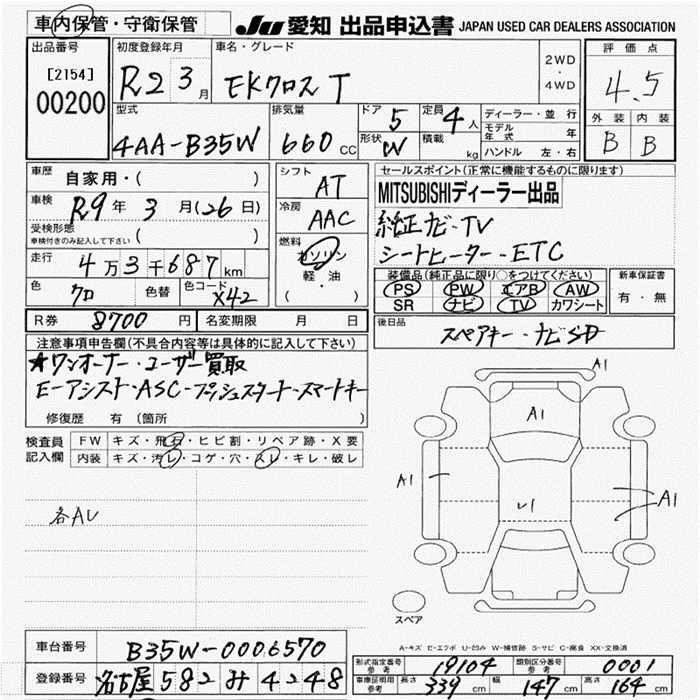 車内保管・守衛保管
JU 愛知 出品申込書 JAPAN USED CAR DEALERS ASSOCIATION
出品番号
[2154]
00200
初度登録年月
R2 3月
車名・グレード
EKクロス T
2WD
・
4WD
評価点
4.5
外装 内装
B B
型式
4AA-B35W
排気量
660 CC
ドア 5
形状 W
定員 4人
積載 kg
ディーラー・並行
モデル年式 年
ハンドル 左・右
車歴
自家用・( )
車検
R9年 3月(26日)
受検形態
車検付きのみ記入して下さい ( )
走行
4万3千687km
色
クロ
色替
色コード
X42
シフト
AT
冷房
AAC
燃料
ガソリン
軽・油
( )
セールスポイント(正常に機能するものに限ります)
MITSUBISHIディーラー出品
純正ナビ・TV
シートヒーター・ETC
装備品(純正品に限り○をつけてください)
PS PW エアB AW
SR ナビ TV カワシート
新車保証書
有・無
R券 8700円
名変期限 月 日
後日品
スペアキー・ナビSD
注意事項申告欄(不具合内容等は具体的に記入して下さい)
★ワンオーナー・ユーザー買取
E-アシスト・ASC・プッシュスタート・スマートキー
修復歴 有 (箇所 )
検査員
記入欄
FW キズ・飛石・ヒビ割・リペア跡・X要
内装 キズ・汚レ・コゲ・穴・スレ・キレ・破レ
各AU
A1
A1
A1
A1
U1
スペア
A-キズ E-エクボ U-凹み W-補修跡 S-サビ C-腐食 XX-交換済
車台番号 B35W-0006570
登録番号 名古屋 582 み 4248
形式指定番号 参考 19104
類別区分番号 参考 0001
車庫証明用 参考 長さ 339 cm 幅 147 cm 高さ 164 cm